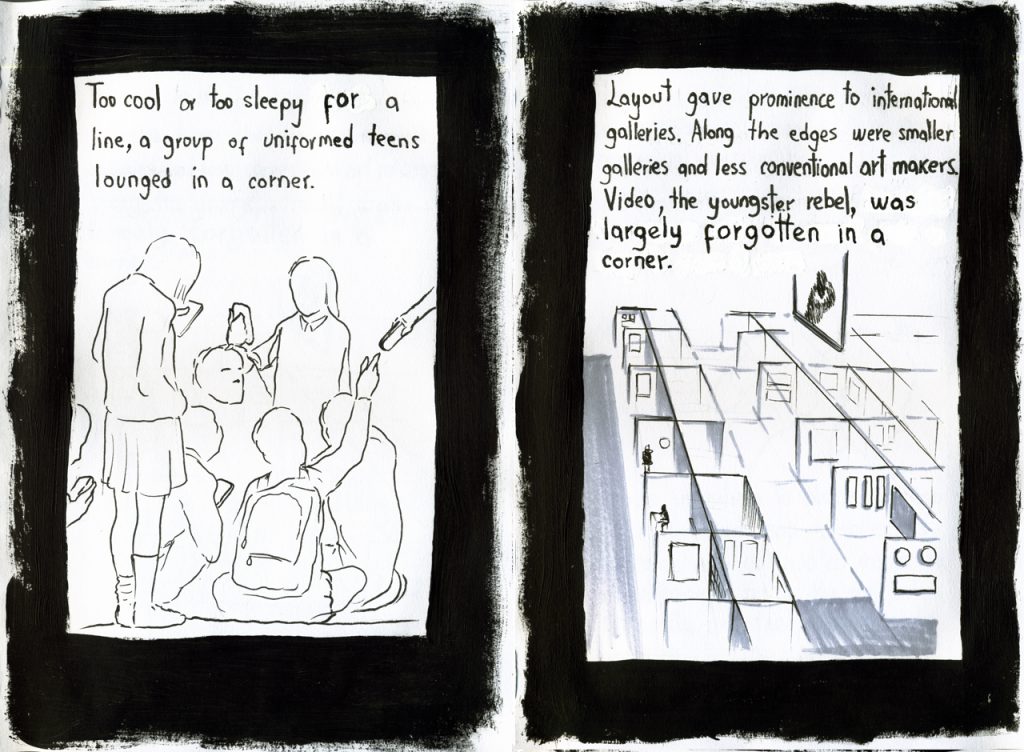 Too cool or too sleepy for a
line, a group of uniformed teens
lounged in a corner.
Layout gave prominence to international
galleries. Along the edges were smaller
galleries and less conventional art makers.
Video, the youngster rebel, was
largely forgotten in a
corner.